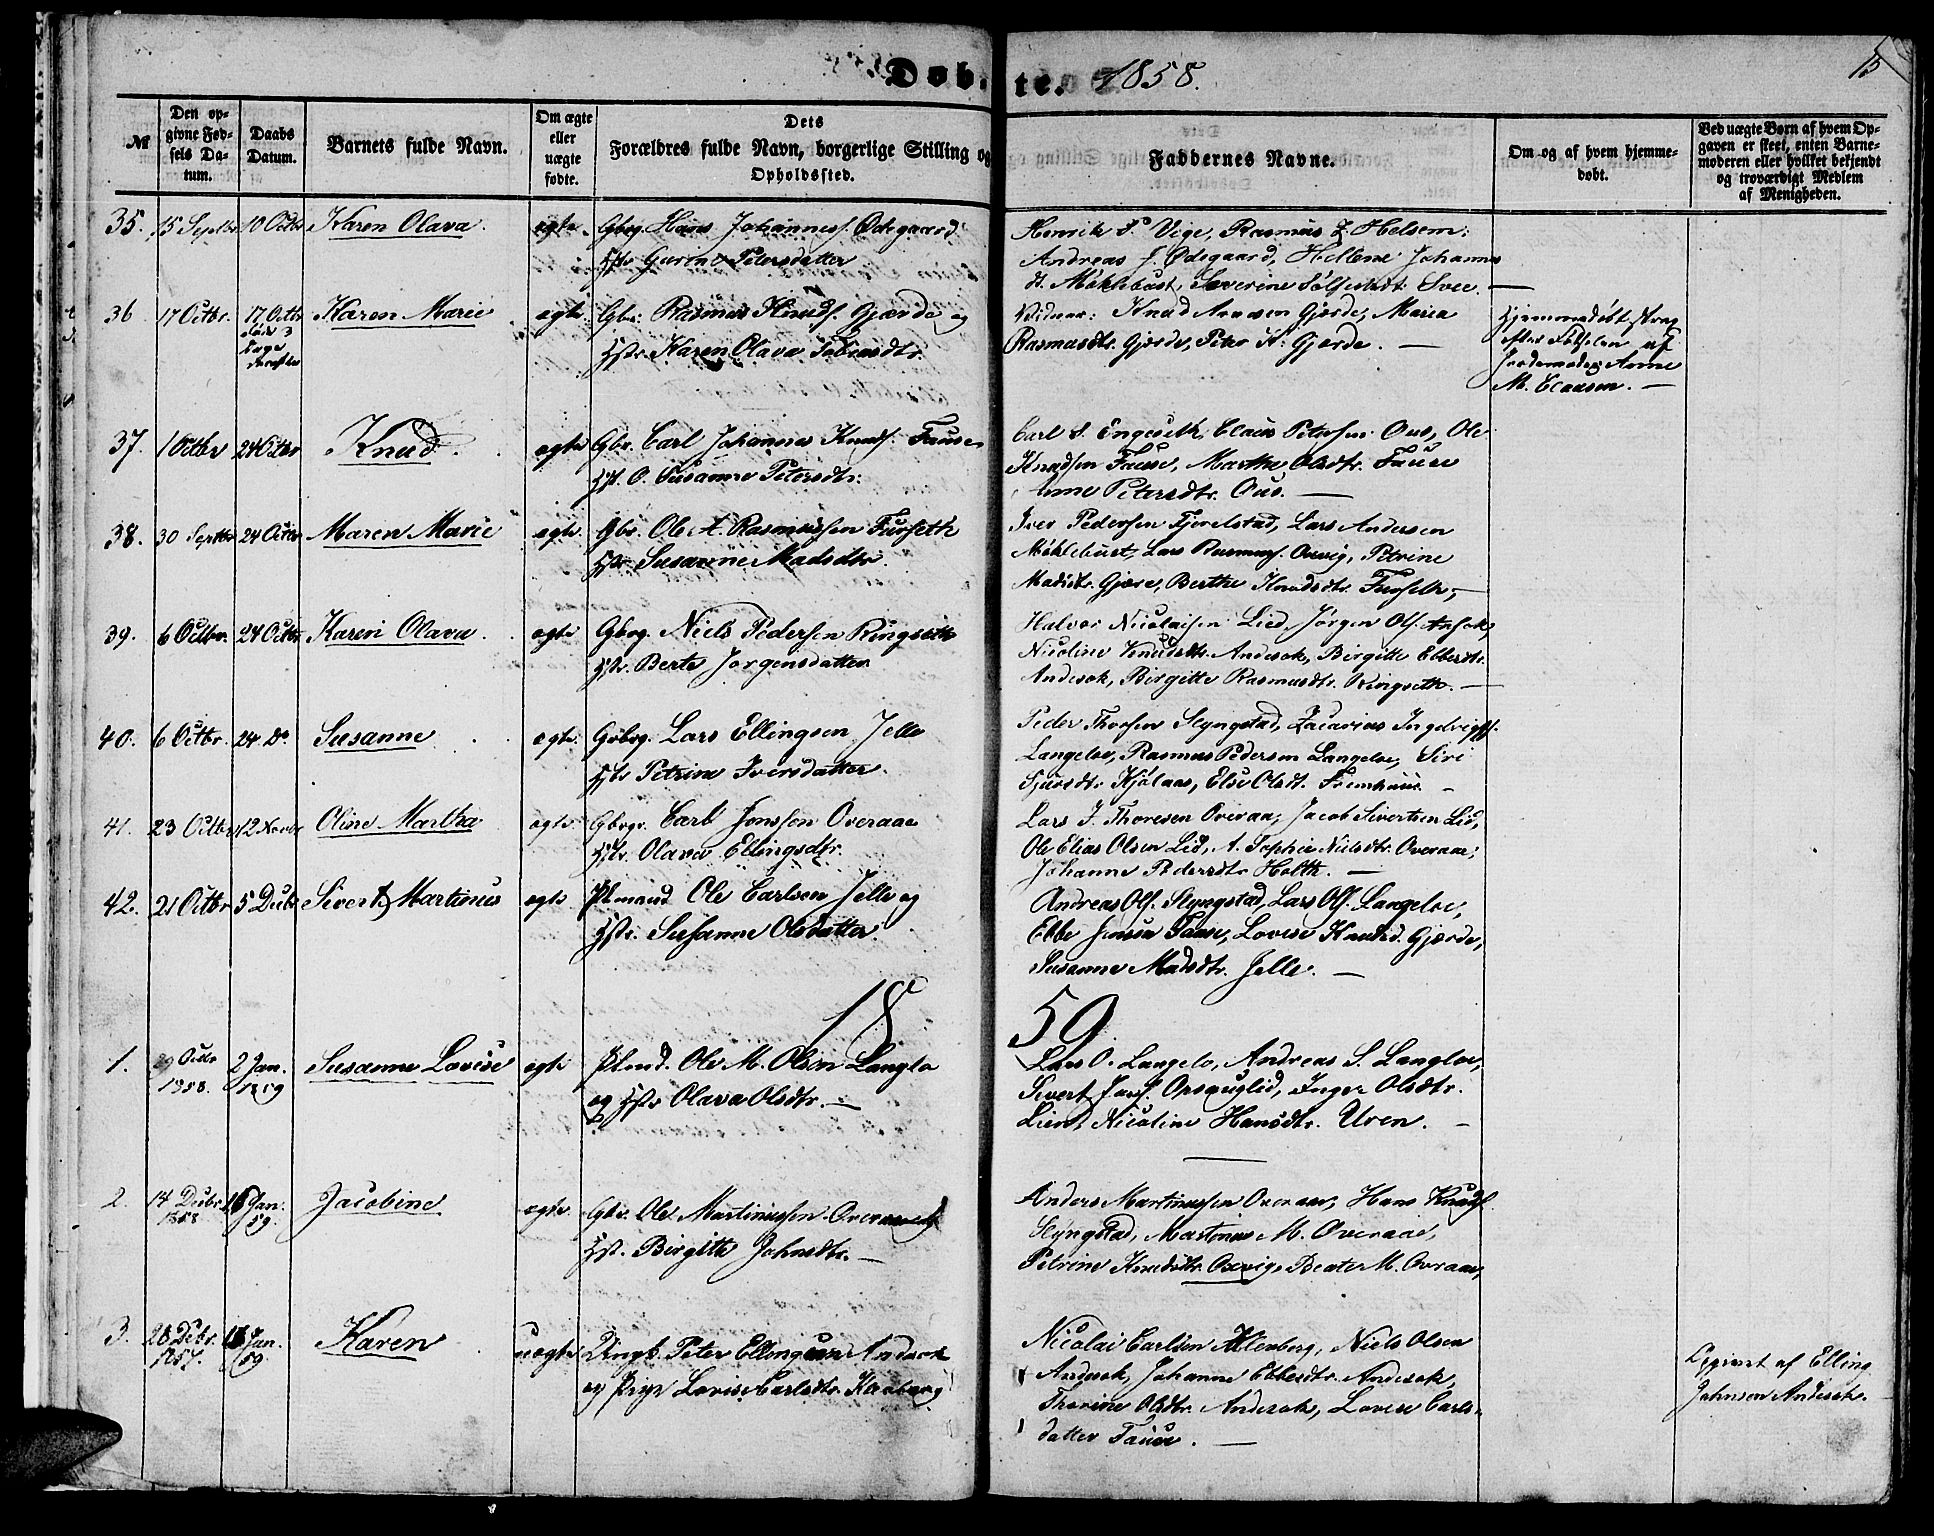 Døb- te. 1858.
15
№
Den opgivne Fødsels Datum.
Daabs Datum.
Barnets fulde Navn.
Om ægte eller uægte fødte.
Dets Forældres fulde Navn, borgerlige Stilling og Opholdssted.
Faddernes Navne.
Om og af hvem hjemmedøbt.
Ved uægte Børn af hvem Opgaven er skeet, enten Barnemoderen eller hvilket bekjendt og troværdigt Medlem af Menigheden.
35. 15 Septbr 10 Octbr Karen Olava. ægte Gbrg. Hans Johanness. Ødegaard
Hstr Gurine Petersdatter
Henrik S. Vige, Rasmus Z Helsem.
Andreas J. Ødegaard, Hellene Johannes
H. Møklebust, Severine Sølfestdt. Svee. —
36 17 Octbr. 17 Octbr
Døde 3
Dage
derefter
Karen Marie ægte Gbr. Rasmus Knuds. Gjærde og
Hstr. Karen Olava Tobiasdtr.
Vidner: Knud Aamsen Gjerde, Maria
Rasmusdtr. Gjerde, Peter K. Gjærde. —
Hjemmedøbt strax
efter Fødselen af
Jordemoder Anne
M. Claasen. —
37. 1 Octbr 24 Octbr Knud. ægte Gbr. Carl Johannes Knuds. Fause
Hst. O. Susanne Petersdtr.
Carl S. Engeseth, Claus Petersen Ous, Ole
Knudsen Fause, Marthe Olsdtr. Fause
Anne Petersdtr. Ous. —
38. 30 Septbr 24 Octbr Maren Marie ægte Gbr. Ole A. Rasmussen Furseth
Hstr Susanne Madsdtr.
Iver Pedersen Fjørelstad, Lars Andersen
Møklebust, Lars Rasmuss. Oxvig, Petrine
Madsdtr. Gjære, Berthe Knudsdtr. Furseth, —
39. 6 Octbr. 24 Octbr Karen Olava. ægte Gbrg. Niels Pedersen Ringseth
Hstr. Berte Jørgensdatter
Halvor Nicolaisen Lied, Jørgen Ols. Ansok,
Nicoline Knudsdtr. Andesok, Birgitte Ebbesdtr.
Andesok, Birgitte Rasmusdtr. Ringseth. —
40. 6 Octbr. 24 Do Susanne ægte. Gbrg. Lars Ellingsen Jelle
Hstr Petrine Iversdatter.
Peder Thorsen Slyngstad, Zacarias Ingebrigts.
Langeloe, Rasmus Pedersen Langeloe, Siri
Sjursdtr Kjølaas, Else Olsdt. Fremhuus. —
41. 23 Octbr 12 Novbr Oline Martha ægte Gbrgr. Carl Jonsson Overaae
Hstr. Olava Ellingsdtr.
Lars J. Thoresen Overaa, Jacob Sivertsen Lid,
Ole Elias Olsen Lid, A. Sophie Nielsdtr. Overaae,
Johanne Pedersdtr Holth. —
42. 21 Octbr 5 Decbr Sivert Martinus ægte Plmand Ole Carlsen Jelle og
Hstr. Susanne Olsdatter.
Andreas Ols. Slyngstad, Lars Ols. Langeloe,
Ebbe Jensen Fause, Lovise Knudsd. Gjærde,
Susanne Madsdtr. Jelle. —
18 59
1. 29 Octbr
1858.
2 Jan.
1859
Susanne Lovise ægte Plmd. Ole M. Olsen Langlo
og Hstr Olava Olsdtr. —
Lars O. Langelo, Andreas S. Langloe,
Sivert Jans. Opsauglid, Inger Olsdtr.
Lien, Nicoline Hansdtr. Uren. —
2. 14 Decbr
1858
16 Jan.
59.
Jacobine ægte. Gbr. Ole Martinussen Overaae og
Hst. Birgitte Johnsdtr. —
Anders Martinussen Overaae, Hans Knuds.
Slyngstad, Martinus M. Overaae,
Petrine Knudsdtr. Oxvig, Beate M. Overaae,
3. 28 Debr.
1857.
16 Jan.
59.
Karen uægte Ungk. Peter Ellingsen Andesok
og Pige Lovise Carlsdtr. Kleeberg
Nicolai Carlsen Kleeberg, Niels Olsen
Andesok, Johanne Ebbesdtr. Andesok,
Thorine Olsdtr. Andesok, Lovise Carls-
datter Fause. —
Opgivet af Elling
Johnsen Andesok.